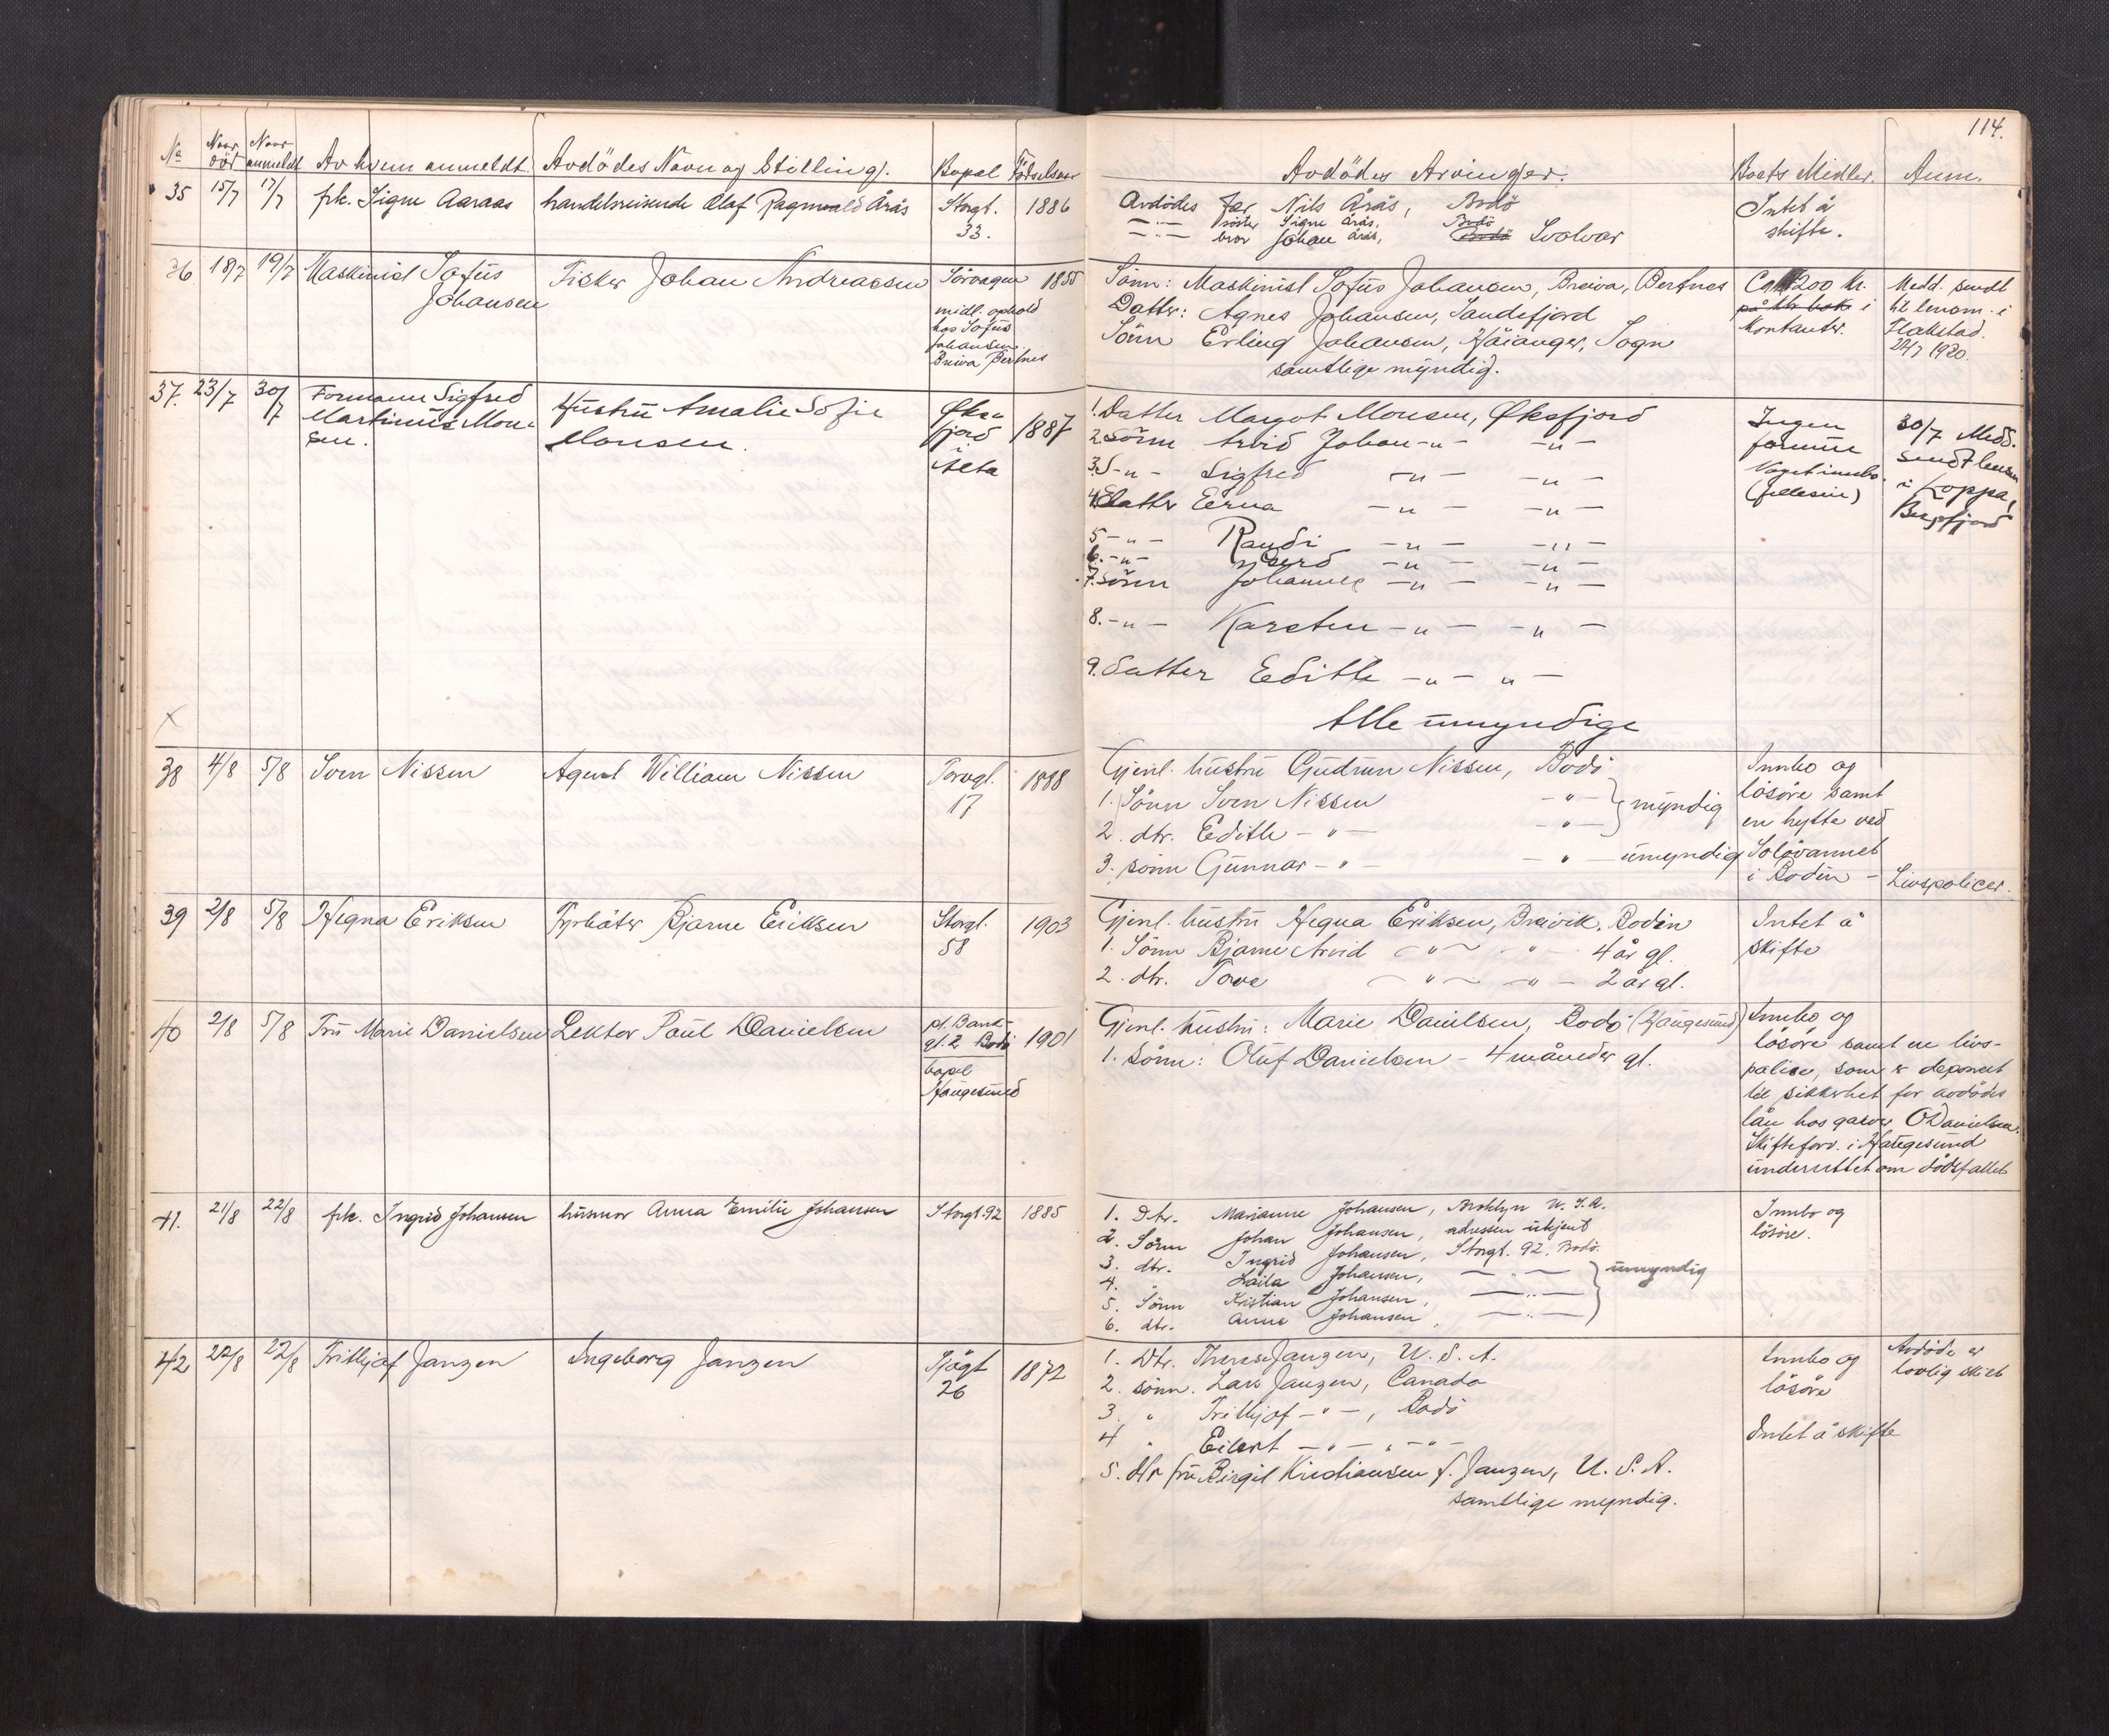 114.
No Naar död Naar anmeldt Av hvem anmeldt. Avdödes Navn og Stilling. Bopæl Födselsaar Avdödes Arvinger. Boets Midler. Anm.
35 15/7 17/7 frk. Signe Aaraas handelsreisende Olaf Ragnvald Årås Storgt. 33. 1886
Avdödes Far Nils Årås, Bodö
— " — söster Signe Årås, Bodö
— " — bror Johan Årås, Bodö Svolvær
Intet å
skifte.
36 18/7 19/7 Maskinist Sofus
Johansen
Fisker Johan Andreassen
Sörvagen 1855
midl. ophold
hos Sofus
Johansen.
Breiva Bertnes
Sönn: Maskinist Sofus Johansen, Breiva, Bertnes
Datter: Agnes Johansen, Sandefjord
Sönn Erling Johansen, Höianger, Sogn
samtlige myndig.
Ca 1200 kr.
på kr. bok i
kontanter.
Medd. sendt
til lensm. i
Flakstad.
22/7 1930.
37. 23/7 30/7 Formann Sigfred
Martinus Mon-
sen.
Hustru Amalie Sofie
Monsen.
Øks-
fjord
i
Alta
1887
1. Datter Margot Monsen, Øksfjord
2. sönn Arvid Johan - " - - " -
3. S - " - Sigfred - " - - " -
4. Datter Erna - " - - " -
5 - " - Randi - " - - " -
6. - " - Gerd - " - - " -
7. sönn Johannes - " - - " -
8. - " - Karsten - " - - " -
9. datter Edith - " - " -
Alle umyndige
Ingen
formue
Noget innbo.
(felleseie)
30/7 Medd.
sendt lensm
i Loppa,
Bergsfjord
X
38 4/8 5/8 Sven Nissen Agent William Nissen Torvgt. 17 1888
Gjenl. hustru Gudrun Nissen, Bodö
1. Sönn Sven Nissen - " - } myndig
2. dtr. Edith - " - - " -
3. sönn Gunnar - " - - " - umyndig
Innbo og
lösöre samt
en hytte ved
Solövannet
i Bodin - Livspolicer.
39 2/8 5/8 Hegna Eriksen Fyrböter Bjarne Eriksen Storgt. 58 1903
Gjenl. hustru Hegna Eriksen, Breivik, Bodin
1. Sönn Bjarne Arvid - " - - " - 4 år gl.
2. dtr. Tove - " - - " - 2 år gl.
Intet å
skifte
40 2/8 5/8 Fru Marie Danielsen Lektor Paul Danielsen
pt. Bank-
gt. 2 Bodö
bopel
Haugesund
1901
Gjenl. hustru: Marie Danielsen, Bodö (Haugesund)
1. Sönn: Oluf Danielsen - 4 måneder gl.
Innbo og
lösöre samt en livs-
police, som er deponert
til sikkerhet for avdödes
lån hos garver O Danielsen.
Skifteforv. i Haugesund
underrettet om dödsfallet
41. 21/8 22/8 frk. Ingrid Johansen husmor Anna Emilie Johansen Storgt. 92 1885
1. Dtr. Marianne Johansen, Brooklyn U.S.A.
2. Sönn Johan Johansen, adressen ukjent
3. dtr. Ingrid Johansen, Storgt. 92. Bodö.
4. Laila Johansen, — " — } umyndig
5. Sönn Kristian Johansen, — " —
6. dtr. Anna Johansen, — " —
Innbo og
lösöre.
42 22/8 22/8 Frithjof Janzen Ingeborg Janzen Sjögt 26 1872
1. Dtr. Therese Janzen, U.S.A.
2. sönn. Lars Janzen, Canada
3. " Frithjof - " -, Bodö
4 " Eilert - " - , - " -
5. dtr fru Birgit Kristiansen f. Janzen, U.S.A.
samtlige myndig.
Innbo og
lösöre
Intet å skifte
Avdöde er
lovlig skilt